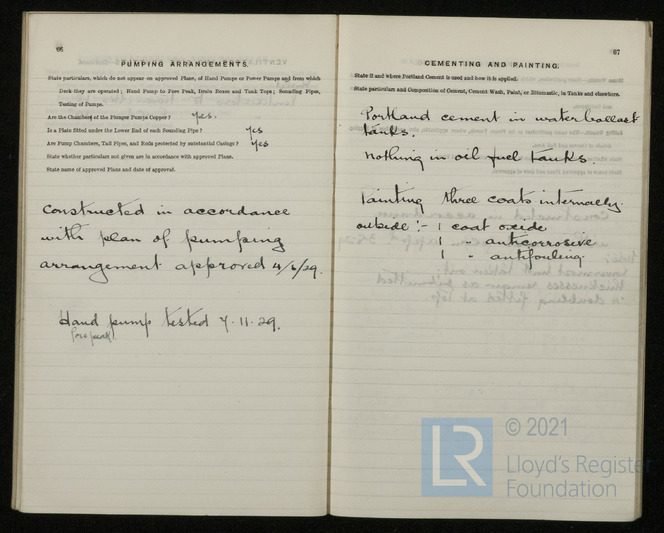 66
PUMPING ARRANGEMENTS.
State particulars, which do not appear on approved Plans, of Hand Pumps or Power Pumps and from which
Deck they are operated; Hand Pump to Fore Peak, Drain Boxes and Tank Tops; Sounding Pipes,
Testing of Pumps.
Are the Chambers of the Plunger Pumps Copper? yes.
Is a Plate fitted under the Lower End of each Sounding Pipe? yes
Are Pump Chambers, Tail Pipes, and Rods protected by substantial Casings? yes
State whether particulars not given are in accordance with approved Plans.
State name of approved Plans and date of approval.
Constructed in accordance
with plan of pumping
arrangement approved 4/6/29.
Hand pump tested 7.11.29.
Fore peak
67
CEMENTING AND PAINTING.
State if and where Portland Cement is used and how it is applied.
State particulars and Composition of Cement, Cement Wash, Paint, or Bitumastic, in Tanks and elsewhere.
Portland cement in water ballast
tanks.
Nothing in oil fuel tanks.
Painting three coats internally.
outside :- 1 coat oxide
1 " anticorrosive
1 " antifouling.
© 2021
LR
Lloyd's Register
Foundation